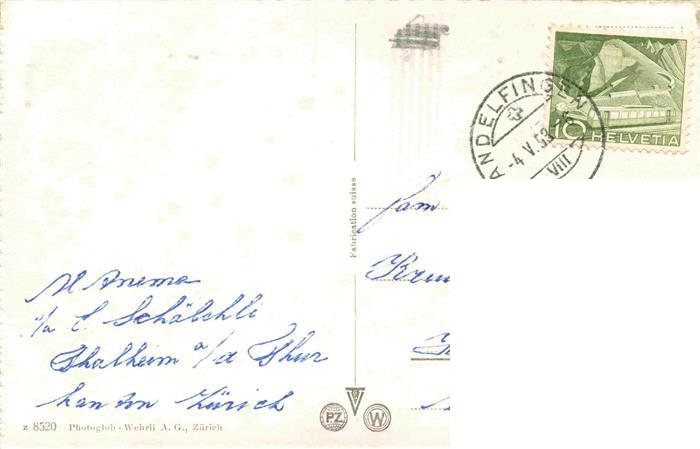 ANDELFINGEN
-4.V.53
VIII
10 HELVETIA
Fabrication suisse
Fam
M Anema
p/a C Schälchli
Thalheim a/d Thur
kanton Zürich
PZ W
z 8520 Photoglob - Wehrli A. G., Zürich